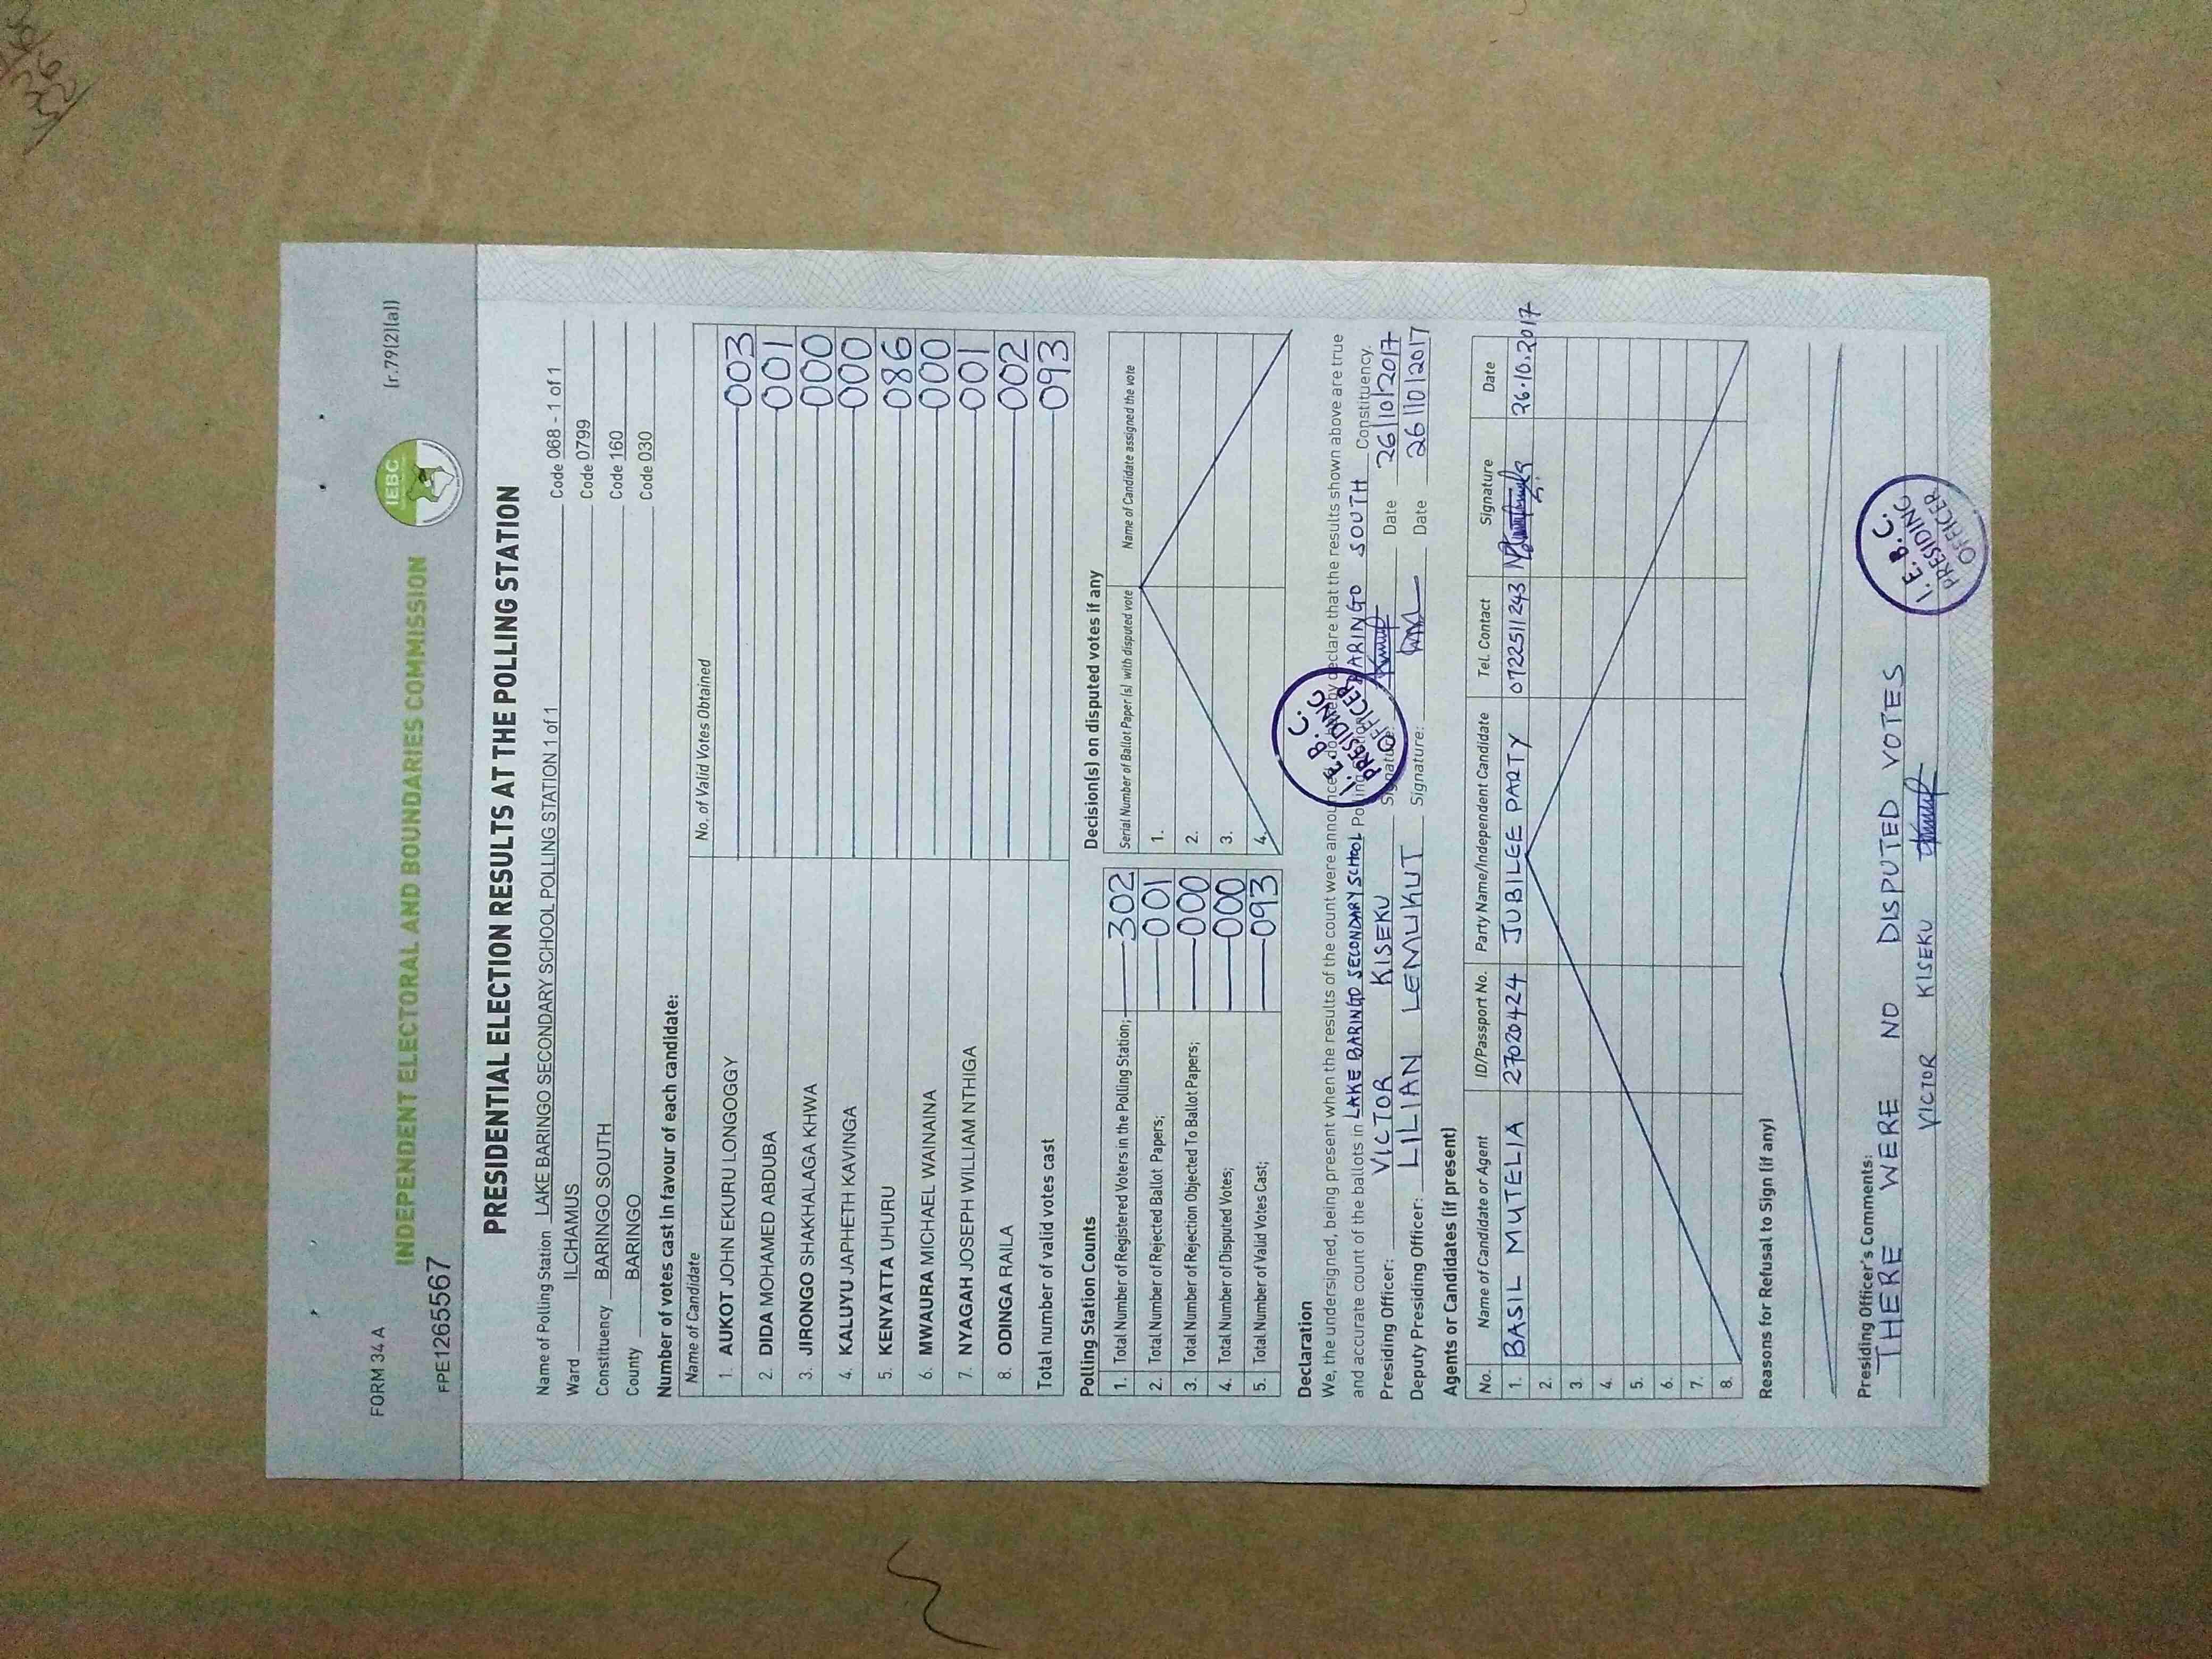 FORM 34 A
(r.79(2)(a))
INDEPENDENT ELECTORAL AND BOUNDARIES COMMISSION
IEBC
FPE1265567
PRESIDENTIAL ELECTION RESULTS AT THE POLLING STATION
Name of Polling Station LAKE BARINGO SECONDARY SCHOOL POLLING STATION 1 of 1 Code 068 - 1 of 1
Ward ILCHAMUS Code 0799
Constituency BARINGO SOUTH Code 160
County BARINGO Code 030
Number of votes cast in favour of each candidate:
Name of Candidate No. of Valid Votes Obtained
1. AUKOT JOHN EKURU LONGOGGY 003
2. DIDA MOHAMED ABDUBA 001
3. JIRONGO SHAKHALAGA KHWA 000
4. KALUYU JAPHETH KAVINGA 000
5. KENYATTA UHURU 086
6. MWAURA MICHAEL WAINAINA 000
7. NYAGAH JOSEPH WILLIAM NTHIGA 001
8. ODINGA RAILA 002
Total number of valid votes cast 093
Polling Station Counts
1. Total Number of Registered Voters in the Polling Station; 302
2. Total Number of Rejected Ballot Papers; 001
3. Total Number of Rejection Objected To Ballot Papers; 000
4. Total Number of Disputed Votes; 000
5. Total Number of Valid Votes Cast; 093
Decision(s) on disputed votes if any
Serial Number of Ballot Paper (s) with disputed vote Name of Candidate assigned the vote
1.
2.
3.
4.
Declaration
We, the undersigned, being present when the results of the count were announced, do hereby declare that the results shown above are true
and accurate count of the ballots in LAKE BARINGO SECONDARY SCHOOL Polling BARINGO SOUTH Constituency.
Presiding Officer: VICTOR KISEKU Signature: Date 26/10/2017
Deputy Presiding Officer: LILIAN LEMUKUT Signature: Date 26/10/2017
I. E. B. C.
PRESIDING
OFFICER
Agents or Candidates (if present)
No. Name of Candidate or Agent ID/Passport No. Party Name/Independent Candidate Tel. Contact Signature Date
1. BASIL MUTELIA 27020424 JUBILEE PARTY 0722511243 26.10.2017
2.
3.
4.
5.
6.
7.
8.
Reasons for Refusal to Sign (if any)
Presiding Officer's Comments:
THERE WERE NO DISPUTED VOTES
VICTOR KISEKU
I. E. B. C.
PRESIDING
OFFICER